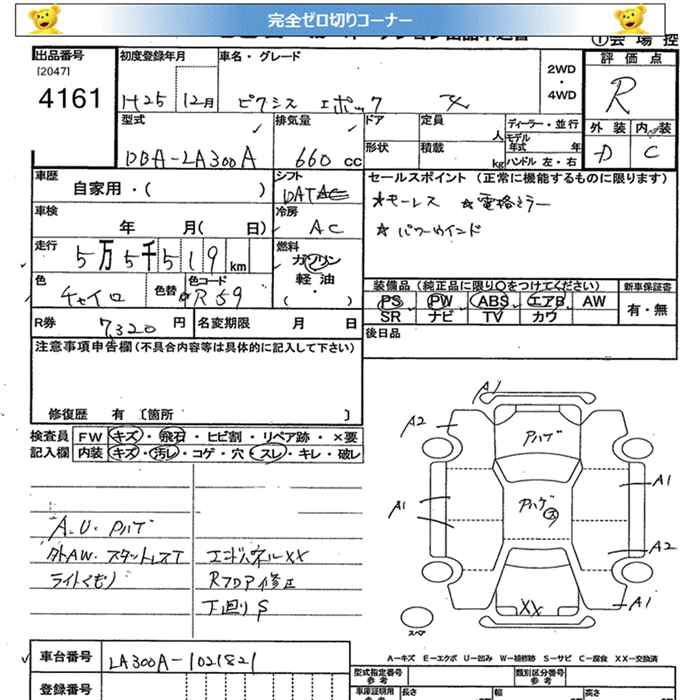 完全ゼロ切りコーナー
①会場控
出品番号
[2047]
4161
初度登録年月
H25 12月
車名・グレード
ピクシス エポック X
2WD
・
4WD
評価点
R
外装 内装
D C
型式
DBA-LA300A
排気量
660 cc
ドア
定員
人
形状
積載
kg
ディーラー・並行
モデル年式 年
ハンドル 左・右
車歴
自家用・( )
シフト
DAT
セールスポイント (正常に機能するものに限ります)
☆キーレス ☆電格ミラー
☆パワーウインド
車検
年 月( 日)
冷房
AC
走行
5万5千519km
燃料
ガソリン
軽油
( ・ )
色
チャイロ
色替
色コード
R59
装備品 (純正品に限り○をつけてください)
新車保証書
PS PW ABS エアB AW
有・無
SR ナビ TV カワ
R券
7320円
名変期限 月 日
後日品
注意事項申告欄(不具合内容等は具体的に記入して下さい)
修復歴 有 〔箇所 〕
検査員記入欄
FW キズ・飛石・ヒビ割・リペア跡・×要
内装 キズ・汚レ・コゲ・穴・スレ・キレ・破レ
A.U.Pハゲ
外AW.スタットレスT
ライトくもり
エンドパネルXX
Rフロア修正
下回りS
A1
A2
Aハゲ
A1
A1
Aハゲ
ス
A2
XX
A1
スペア
A-キズ E-エクボ U-凹み W-補修跡 S-サビ C-腐食 XX-交換済
車台番号
LA300A-1021821
登録番号
型式指定番号
参考
類別区分番号
参考
車庫証明用
参考
長さ
幅
高さ